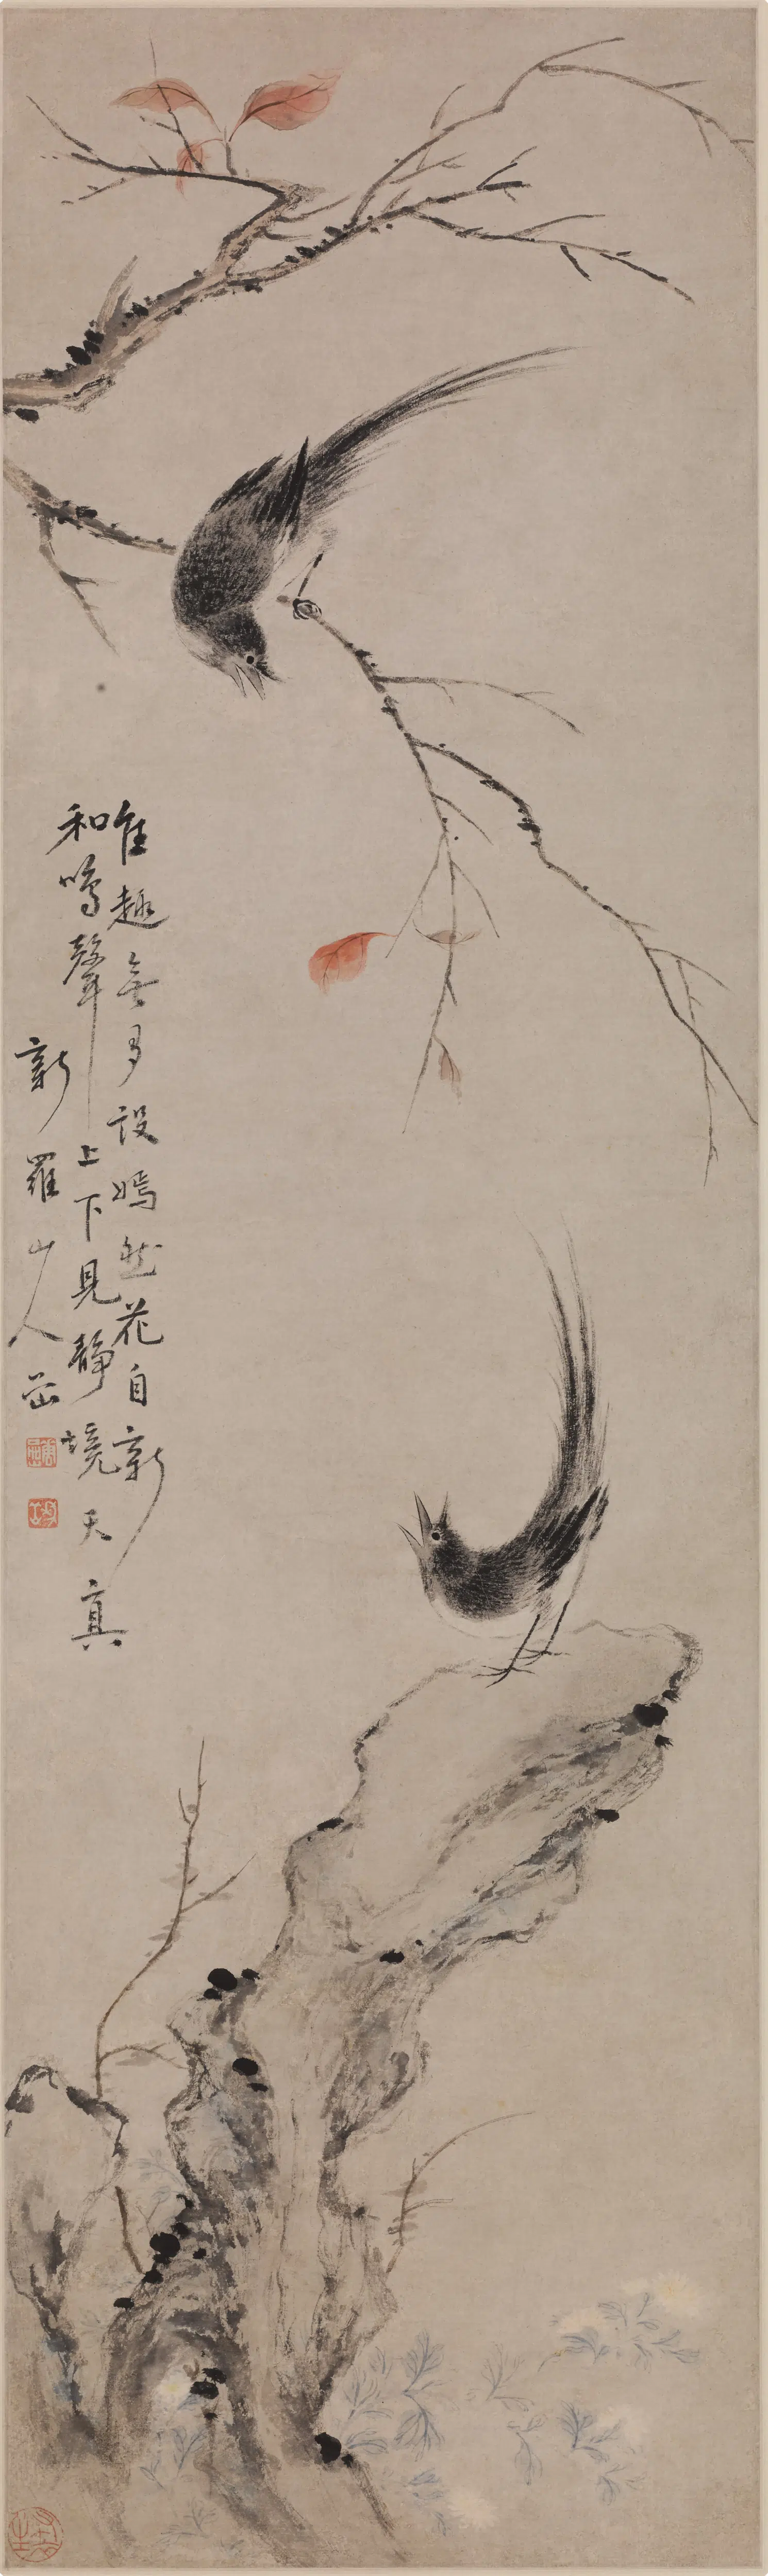 佳趣無多設嫣然花自新
和鳴聲上下見靜境天真
新羅山人嵒